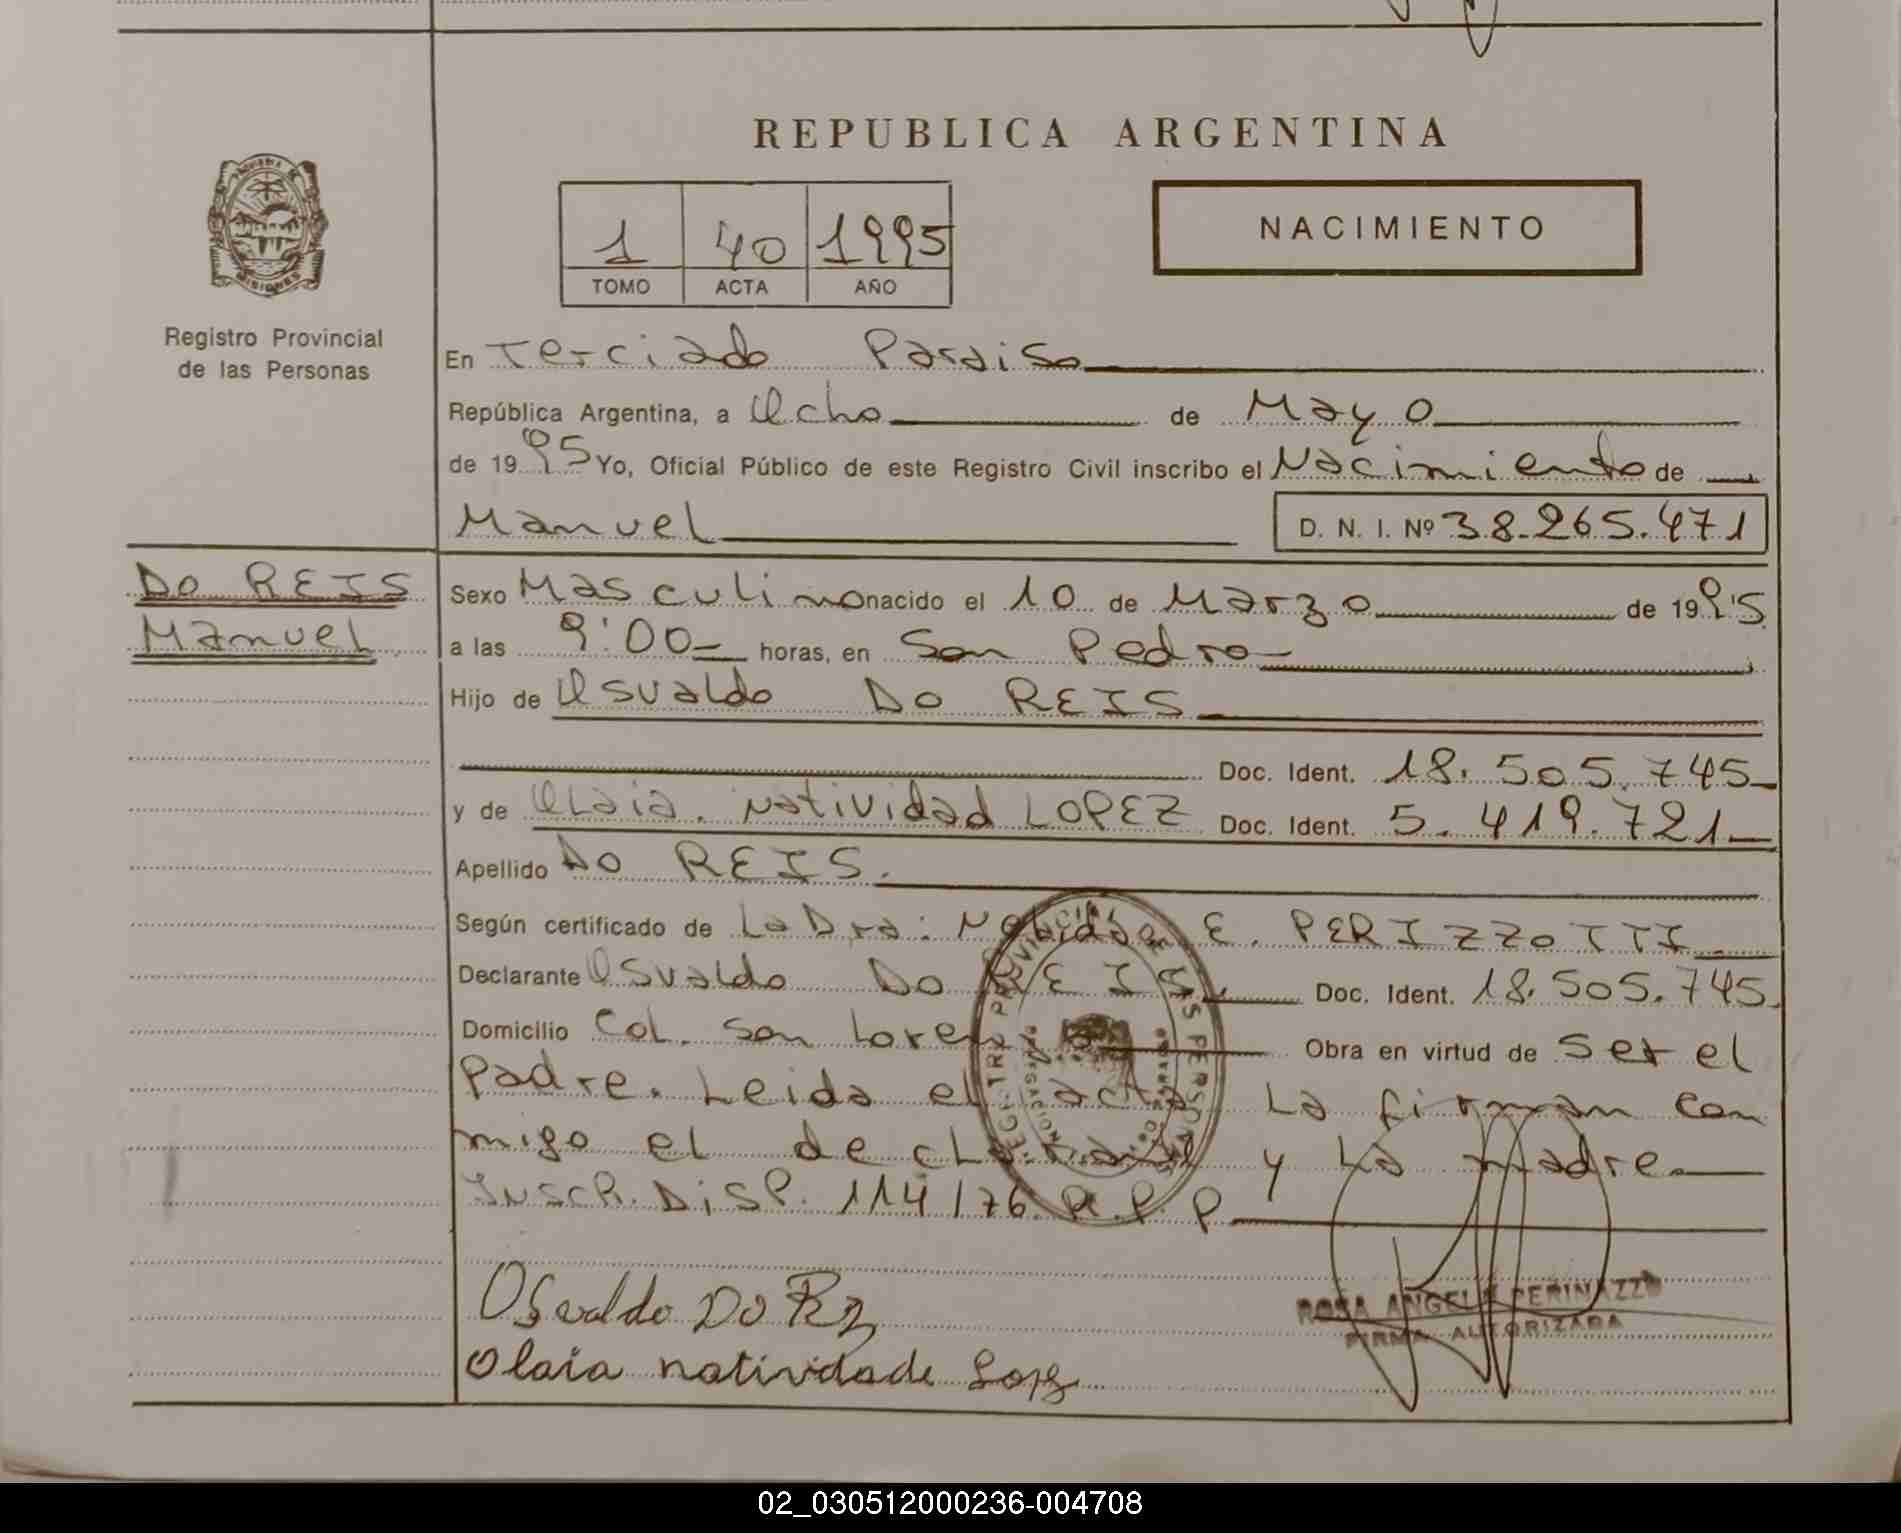 REPUBLICA ARGENTINA
MISIONES
Registro Provincial
de las Personas
1 40 1995
TOMO ACTA AÑO
NACIMIENTO
En Terciado Paraiso
República Argentina, a Ocho de Mayo
de 1995 Yo, Oficial Público de este Registro Civil inscribo el Nacimiento de
Manuel D. N. I. Nº 38.265.471
DO REIS
Manuel
Sexo Masculino nacido el 10 de Marzo de 1995
a las 9:00 horas, en San Pedro
Hijo de Osvaldo DO REIS
Doc. Ident. 18.505.745
y de Olaia. Natividad LOPEZ Doc. Ident. 5.419.721
Apellido DO REIS.
Según certificado de La Dra: E. PERIZZOTTI
Declarante Osvaldo DO REIS. Doc. Ident. 18.505.745.
Domicilio Col. San Lorenzo Obra en virtud de Ser el
Padre. Leida el acta La firman con
migo el declarante y La madre
Inscr. Disp. 114/76. R.P.P
REGISTRO PROVINCIAL DE LAS PERSONAS
Osvaldo Do Reis
Olaia natividade Lopes
ROSA ANGELA PERINAZZO
FIRMA AUTORIZADA
02_030512000236-004708